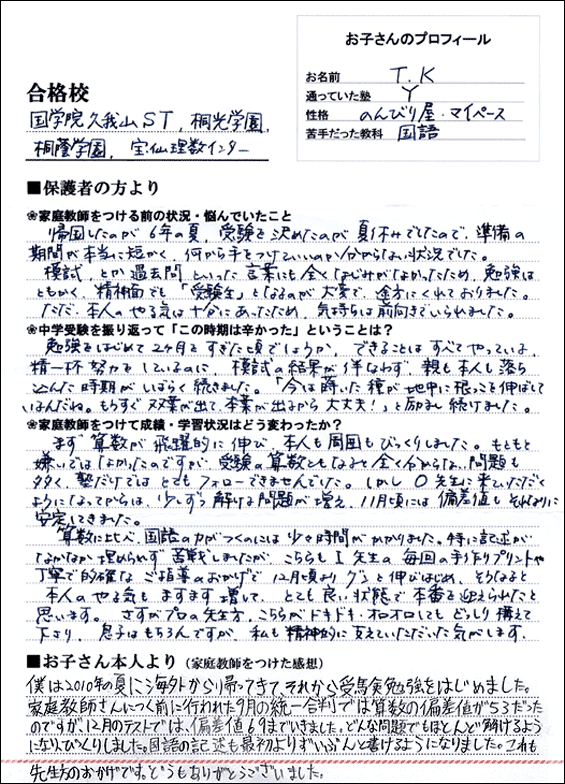 お子さんのプロフィール
お名前 T.K
通っていた塾 Y
性格 のんびり屋・マイペース
苦手だった教科 国語
合格校
国学院久我山ST, 桐光学園,
桐蔭学園, 宝仙理数インター
■保護者の方より
❀家庭教師をつける前の状況・悩んでいたこと
帰国したのが6年の夏, 受験を決めたのが夏休みでしたので, 準備の
期間が本当に短かく, 何から手をつけていいのか分からない状況でした。
模試, とか過去問といった言葉にも全くなじみがなかったため, 勉強は
ともかく, 精神面でも「受験生」となるのが大変で, 途方にくれておりました。
ただ, 本人のやる気は十分にあったため, 気持ちは前向きでいられました。
❀中学受験を振り返って「この時期は辛かった」ということは?
勉強をはじめて2ヶ月をすぎた頃でしょうか, できることはすべてやっていよ,
精一杯努力をしているのに, 模試の結果が伴なわず, 親も本人も落ち
込んだ時期がしばらく続きました。「今は蒔いた種が地中に根っこを伸ばして
いるんだね。もうすぐ双葉が出て, 本葉が出るから大丈夫!」と励まし続けました。
❀家庭教師をつけて成績・学習状況はどう変わったか?
まず算数が飛躍的に伸び, 本人も周囲もびっくりしました。もともと
嫌いではなかったのですが, 受験の算数ともなると全く分からない問題も
多く, 塾だけではとてもフォローできませんでした。しかしO先生に来ていただく
ようになってからは, 少しずつ解ける問題が増え, 11月頃には偏差値もそれなりに
安定してきました。
算数に比べ, 国語の力がつくのには少々時間がかかりました。特に記述が
なかなか埋められず苦戦しましたが, こちらもI先生の毎回の手作りプリントや
丁寧で的確なご指導のおかげで12月頃よりグっと伸びはじめ, そうなると
本人のやる気もますます増して, とても良い状態で本番を迎えられたと
思います。さすがプロの先生方, こちらがドキドキ・オロオロしてもどっしり構えて
下さり, 息子はもちろんですが, 私も精神的に支えていただいた気がします。
■お子さん本人より(家庭教師をつけた感想)
僕は2010年の夏に海外から帰ってきて、それから受験勉強をはじめました。
家庭教師さんにつく前に行われた9月の統一合判では算数の偏差値が53だった
のですが12月のテストでは、偏差値69までいきました。どんな問題でもほとんど解けるよう
になりびっくりしました。国語の記述も最初よりずいぶんと書けるようになりました。これも
先生方のおかげです。どうもありがとうございました。